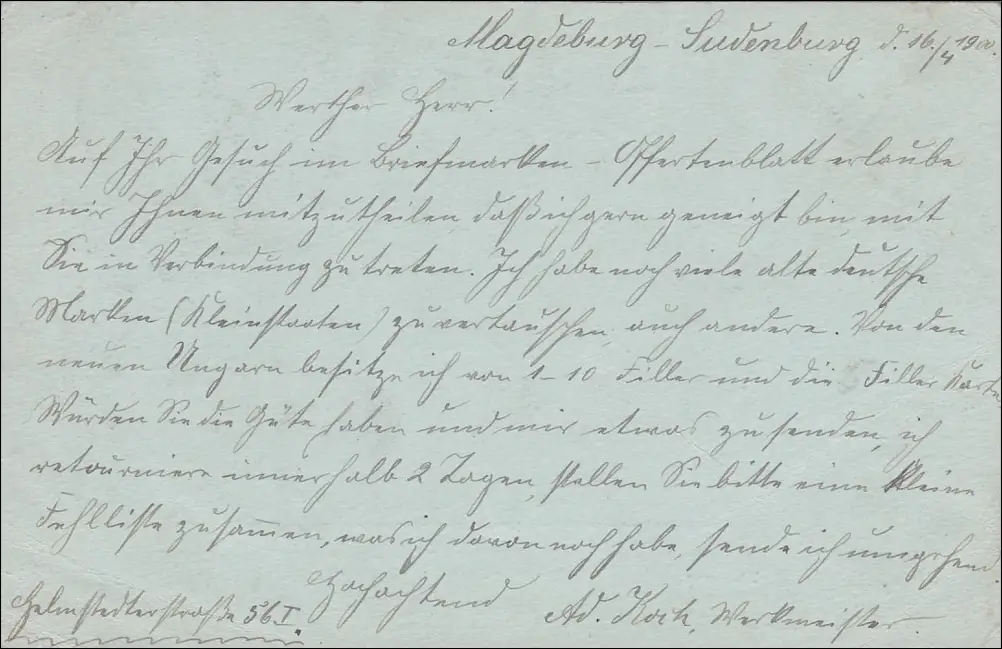 Magdeburg - Sudenburg d. 16./4 1900.
Werther Herr!
Auf Ihr Gesuch im Briefmarken - Offertenblatt erlaube
mir Ihnen mitzutheilen, daß ich gern geneigt bin, mit
Sie in Verbindung zu treten. Ich habe noch viele alte deutsche
Marken (Kleinstaaten) zu vertauschen, auch andere. Von den
neuen Ungarn besitze ich von 1-10 Filler und die Filler Karte
Würden Sie die Güte haben und mir etwas zu senden, ich
retourniere innerhalb 2 Tagen, stellen Sie bitte eine kleine
Fehlliste zusam̅en, was ich davon noch habe, sende ich umgehend.
Hochachtend
Ad. Koch, Werkmeister.
Helmstedterstraße 56.I.